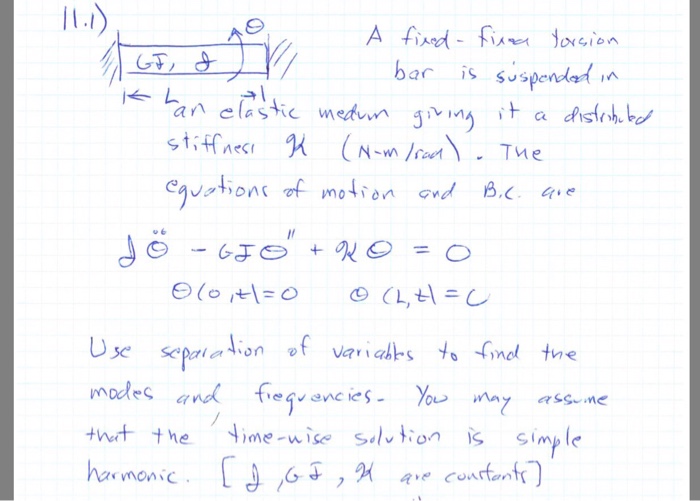 11.1)
Θ
GJ, 𝒥
L
A fixed-fixed torsion
bar is suspended in
an elastic medum giving it a distributed
stiffness 𝒦 (N-m/rad). The
equations of motion and B.C. are
𝒥Θ̈ - GJΘ'' + 𝒦Θ = 0
Θ(0,t)=0 Θ(L,t)=0
Use separation of variables to find the
modes and frequencies. You may assume
that the time-wise solution is simple
harmonic. [𝒥, GJ, 𝒦 are constants]